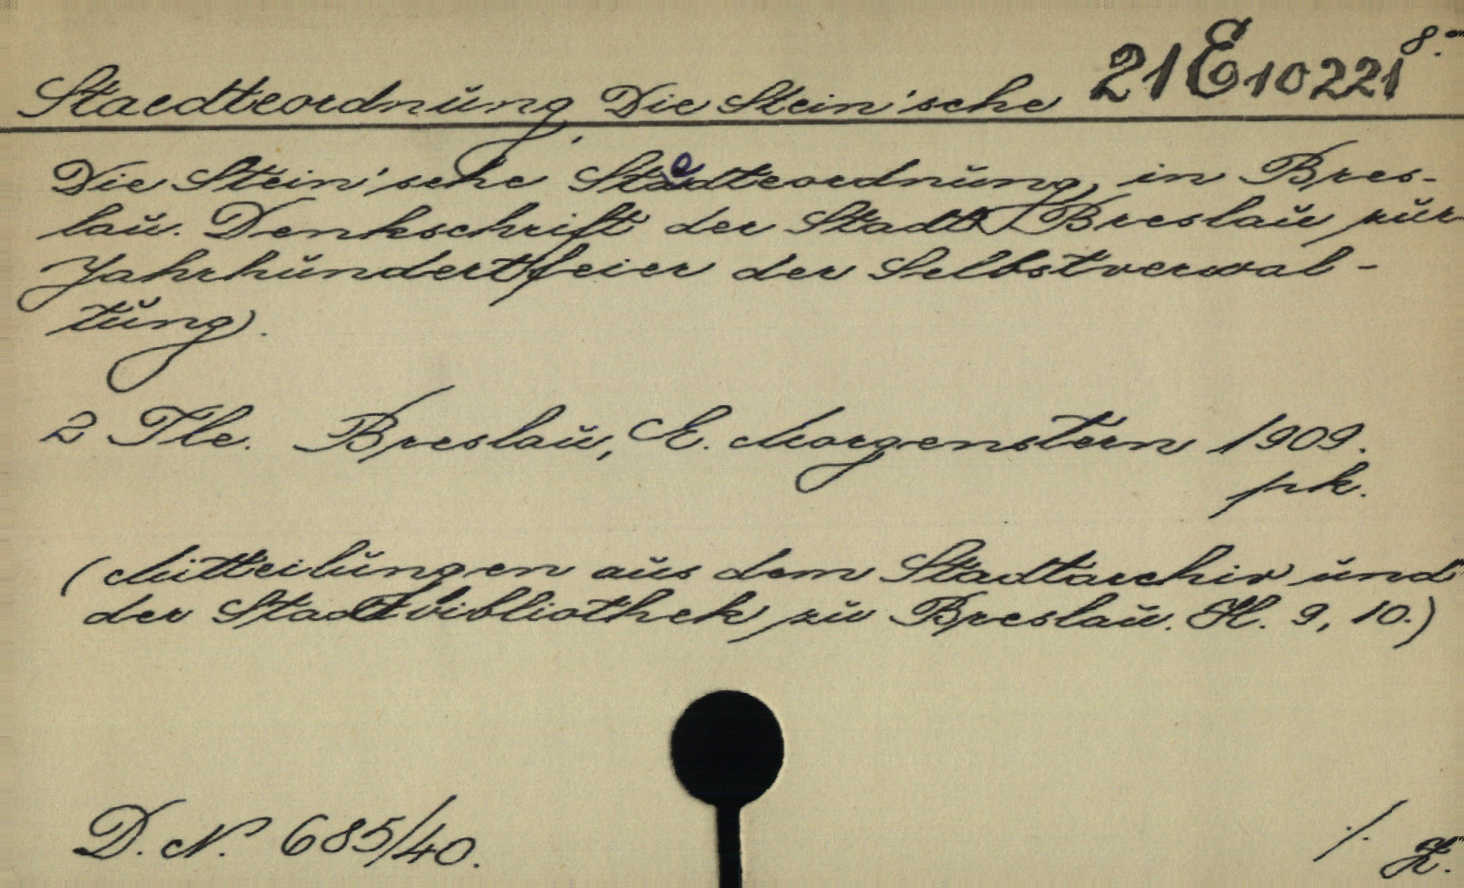 Staedteordnung, Die Stein'sche 21 E 10221 8.°
Die Stein'sche Staedteordnung, in Bres-
lau. Denkschrift der Stadt Breslau zur
Jahrhundertfeier der Selbstverwal-
tung).
2 Tle. Breslau, E. Morgenstern 1909.
pk.
(Mitteilungen aus dem Stadtarchiv und
der Stadtbibliothek zu Breslau. H. 9, 10.)
D. N. 685/40. ./.